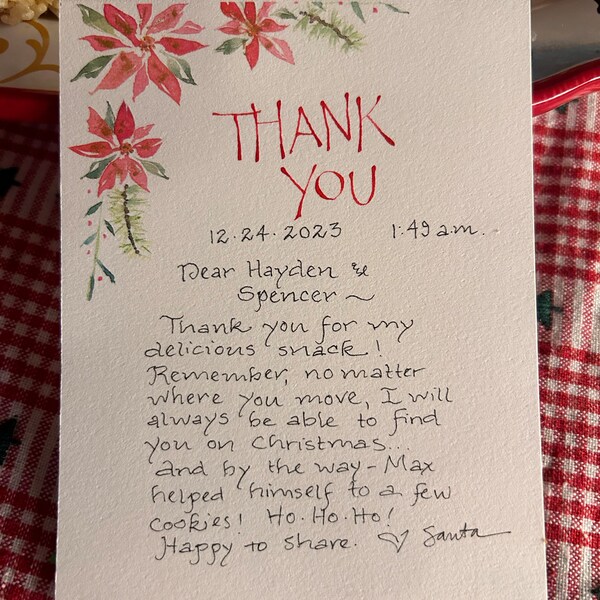 THANK
YOU
12.24.2023 1:49 a.m.
Dear Hayden &
Spencer ~
Thank you for my
delicious snack!
Remember, no matter
where you move, I will
always be able to find
you on Christmas...
and by the way - Max
helped himself to a few
cookies! Ho. Ho. Ho!
Happy to share. ♡ Santa